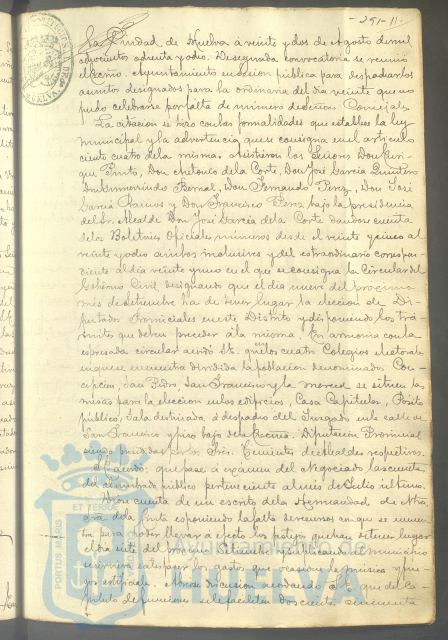 -251-11-
La Ciudad de Huelva á veinte y dos de Agosto de mil
ochocientos ochenta y ocho. De segunda convocatoria se reunió
el Excmo. Ayuntamiento en sesion pública para despachar los
asuntos designados para la ordinaria del dia veinte que no
pudo celebrarse por falta de número de Señores Concejales.
La citacion se hizo con las formalidades que establece la ley
municipal y la advertencia que se consigna en el artículo
ciento cuatro de la misma. Asistieron los Señores Don Enri-
que Pinto, Don Antonio de la Corte, Don José García Quintero
Don Gumersindo Bernal, Don Fernando Perez, Don José
García Ramos y Don Francisco Perez bajo la presidencia
del Sr. Alcalde Don José García de la Corte dandose cuenta
de los Boletines Oficiales números desde el veinte y cinco al
veinte y ocho ambos inclusives y del extraordinario correspon-
diente al dia veinte y uno en el que se consigna la Circular del
Gobierno Civil designando que el dia nueve del próximo
mes de Setiembre ha de tener lugar la eleccion de Di-
putados Provinciales en este Distrito y disponiendo los trá-
mites que deben preceder á la misma. En armonía con la
expresada circular acordó S.E. que en los cuatro Colegios electorale
en que se encuentra dividida la poblacion denominados Con-
cepcion, San Pedro, San Francisco y la Merced se sitúen las
mesas para la eleccion en los edificios, Casa Capitular, Pósito
público, Sala destinada á despacho del Juzgado en la calle de
San Francisco y piso bajo de la Excma. Diputacion Provincial
siendo presididas por los Sres. Tenientes de Alcaldes respectivos.
Se acordó: que pase á exámen del Negociado la cuenta
del alumbrado público perteneciente al mes de Julio último.
Dióse cuenta de un escrito de la Hermandad de Ntra
Sra de la Cinta esponiendo la falta de recursos en que se encuen-
tra para poder llevar á efecto los festejos que han de tener lugar
el dia siete del mes de Setiembre y suplicando del municipio
se sirviera satisfacer los gastos que ocasione la música y fue-
gos artificiales. Abrióse discusion acordando S.E. que del ca-
pítulo de funciones se le faciliten doscientas cincuenta
PORTUS MARIS
ET TERRÆ
Ayuntamiento de
HUELVA